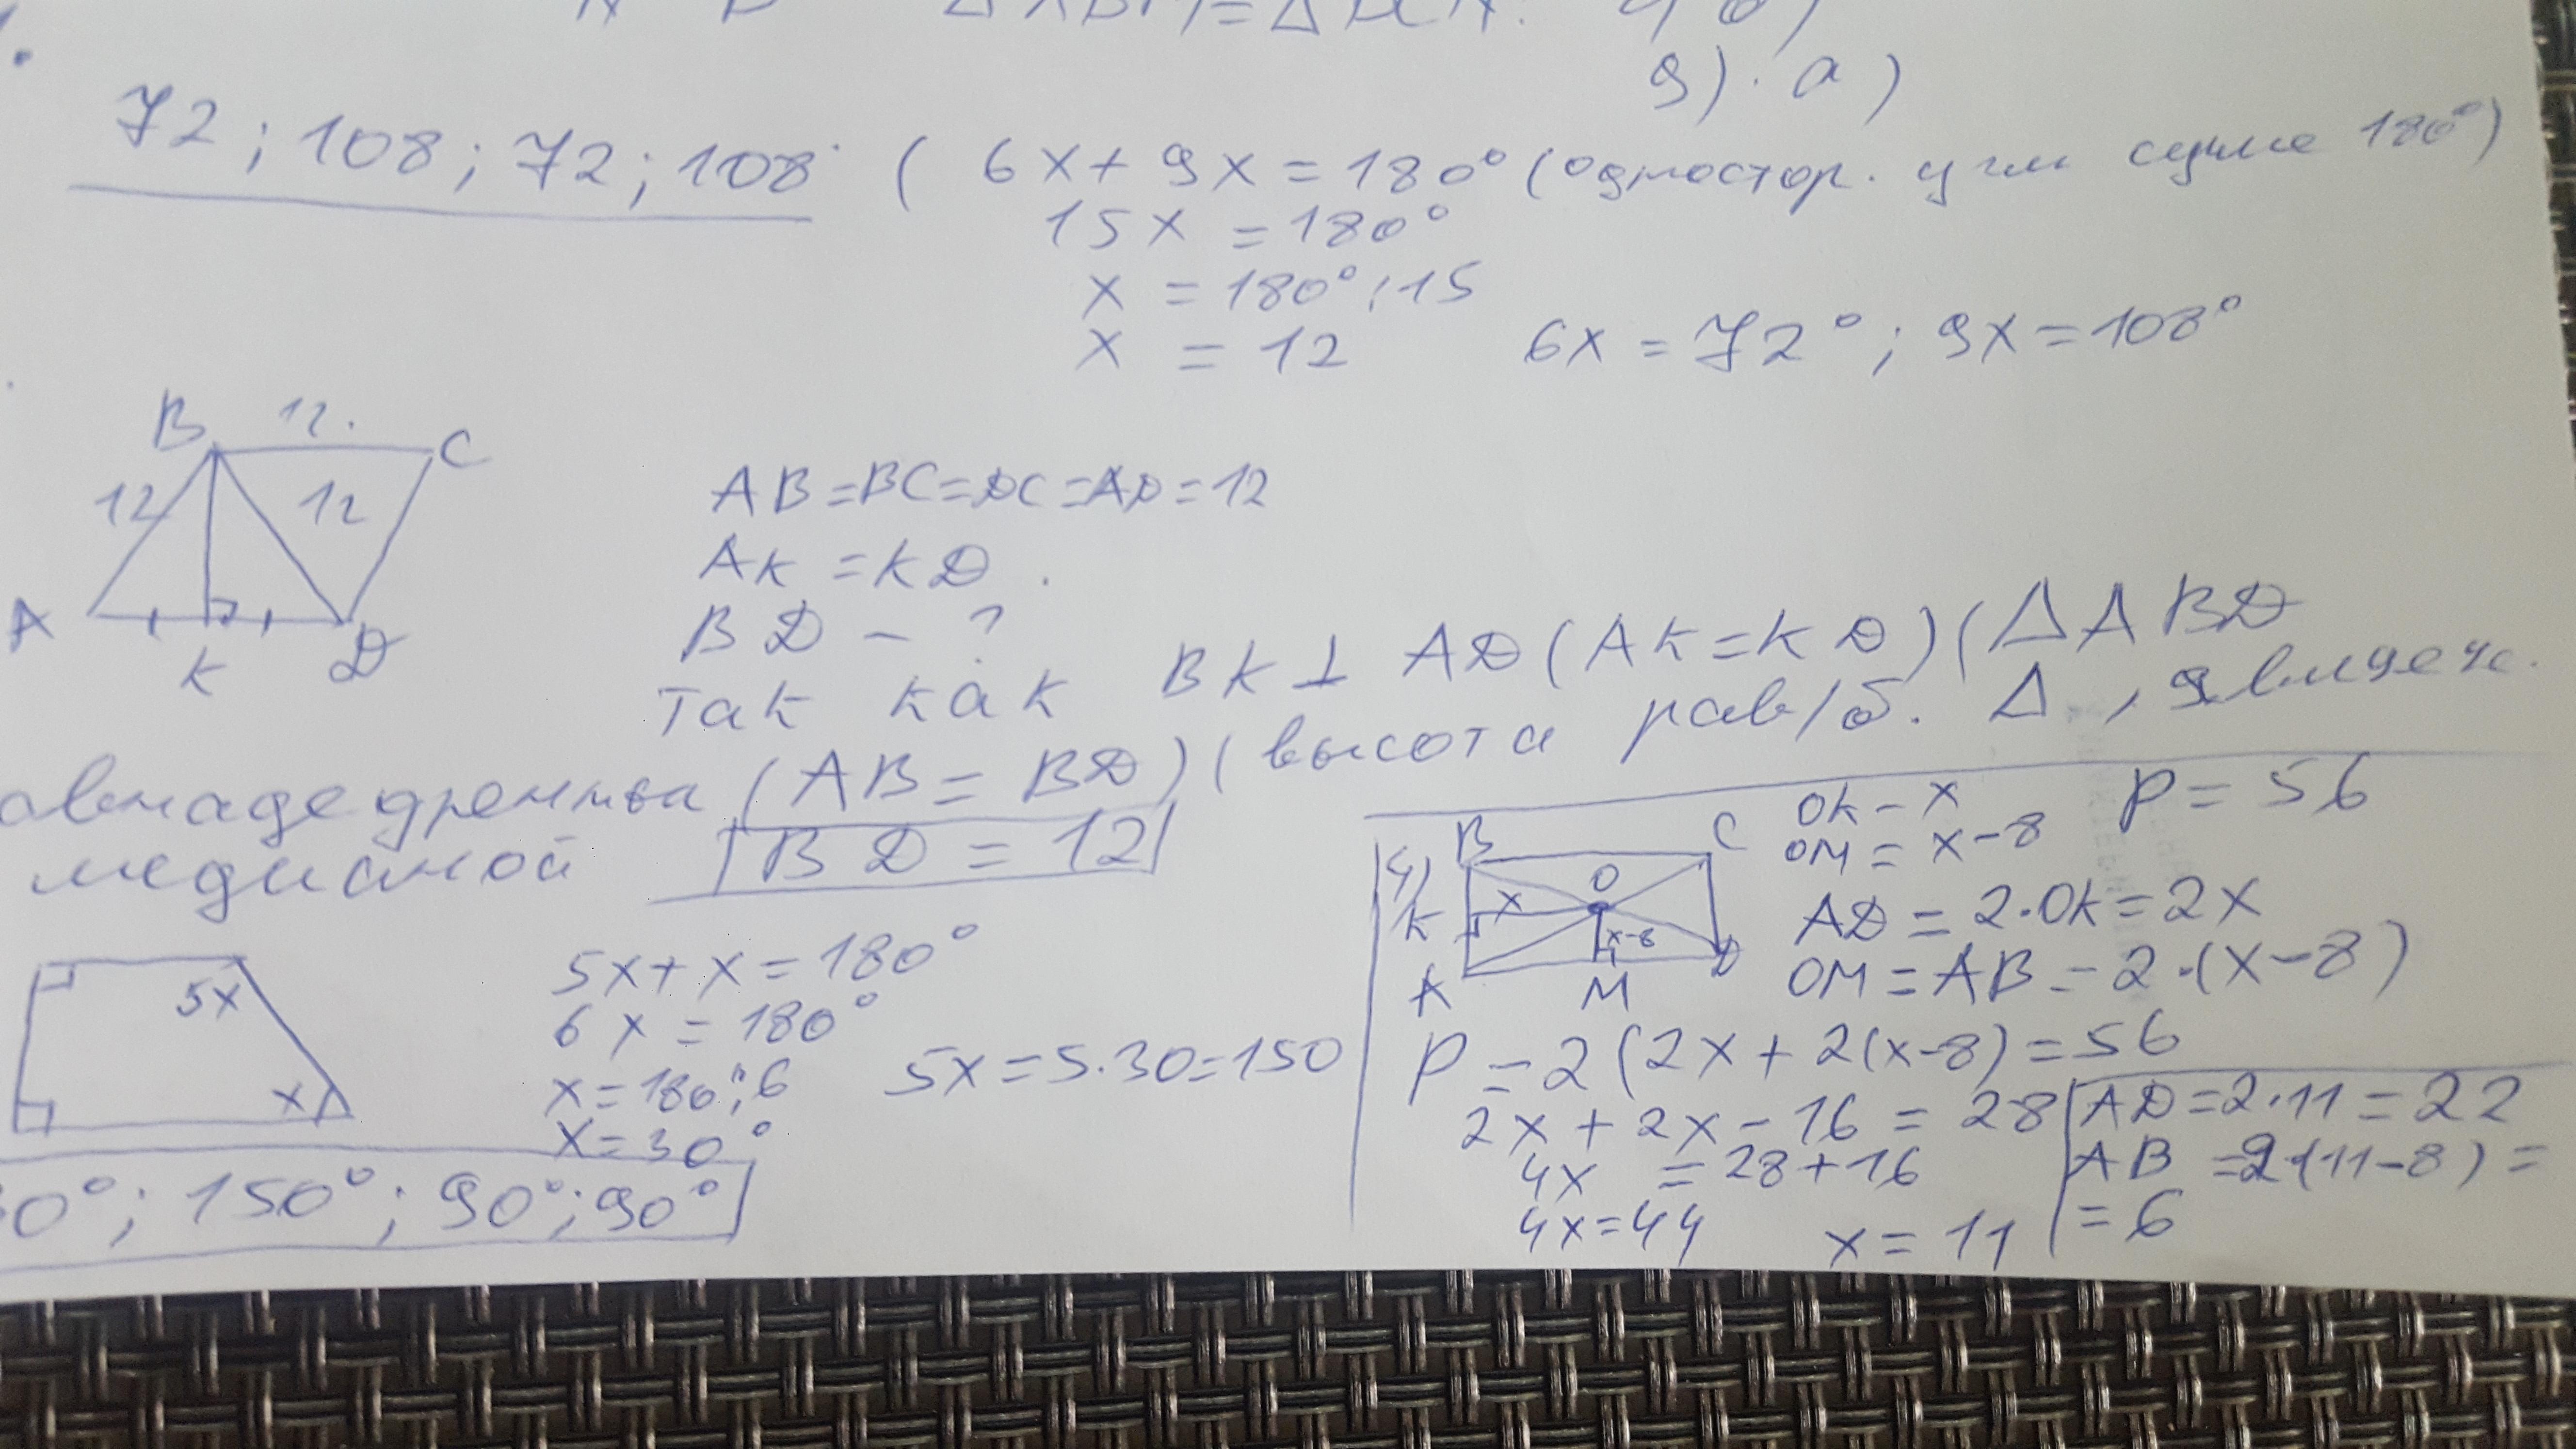 9). а)
72; 108; 72; 108 ( 6x + 9x = 180° (одностор. угли сумме 180°)
15x = 180°
x = 180° : 15
x = 12 6x = 72°; 9x = 108°
B 12. C
12 12
A K D
AB = BC = DC = AD = 12
AK = KD
BD - ?
Так как BK ⊥ AD (AK = KD) (Δ ABD
(AB = BD) (высота рав/б. Δ,
медианой BD = 12
5x
x
5x + x = 180°
6x = 180°
x = 180° : 6
x = 30°
5x = 5·30 = 150
0°; 150°; 90°; 90°
4)
B C
O
K x
x-8
A M D
OK - x P = 56
OM = x - 8
AD = 2·OK = 2x
OM = AB = 2·(x - 8)
P = 2 (2x + 2(x-8) = 56
2x + 2x - 16 = 28
4x = 28 + 16
4x = 44 x = 11
AD = 2·11 = 22
AB = 2·(11-8) =
= 6